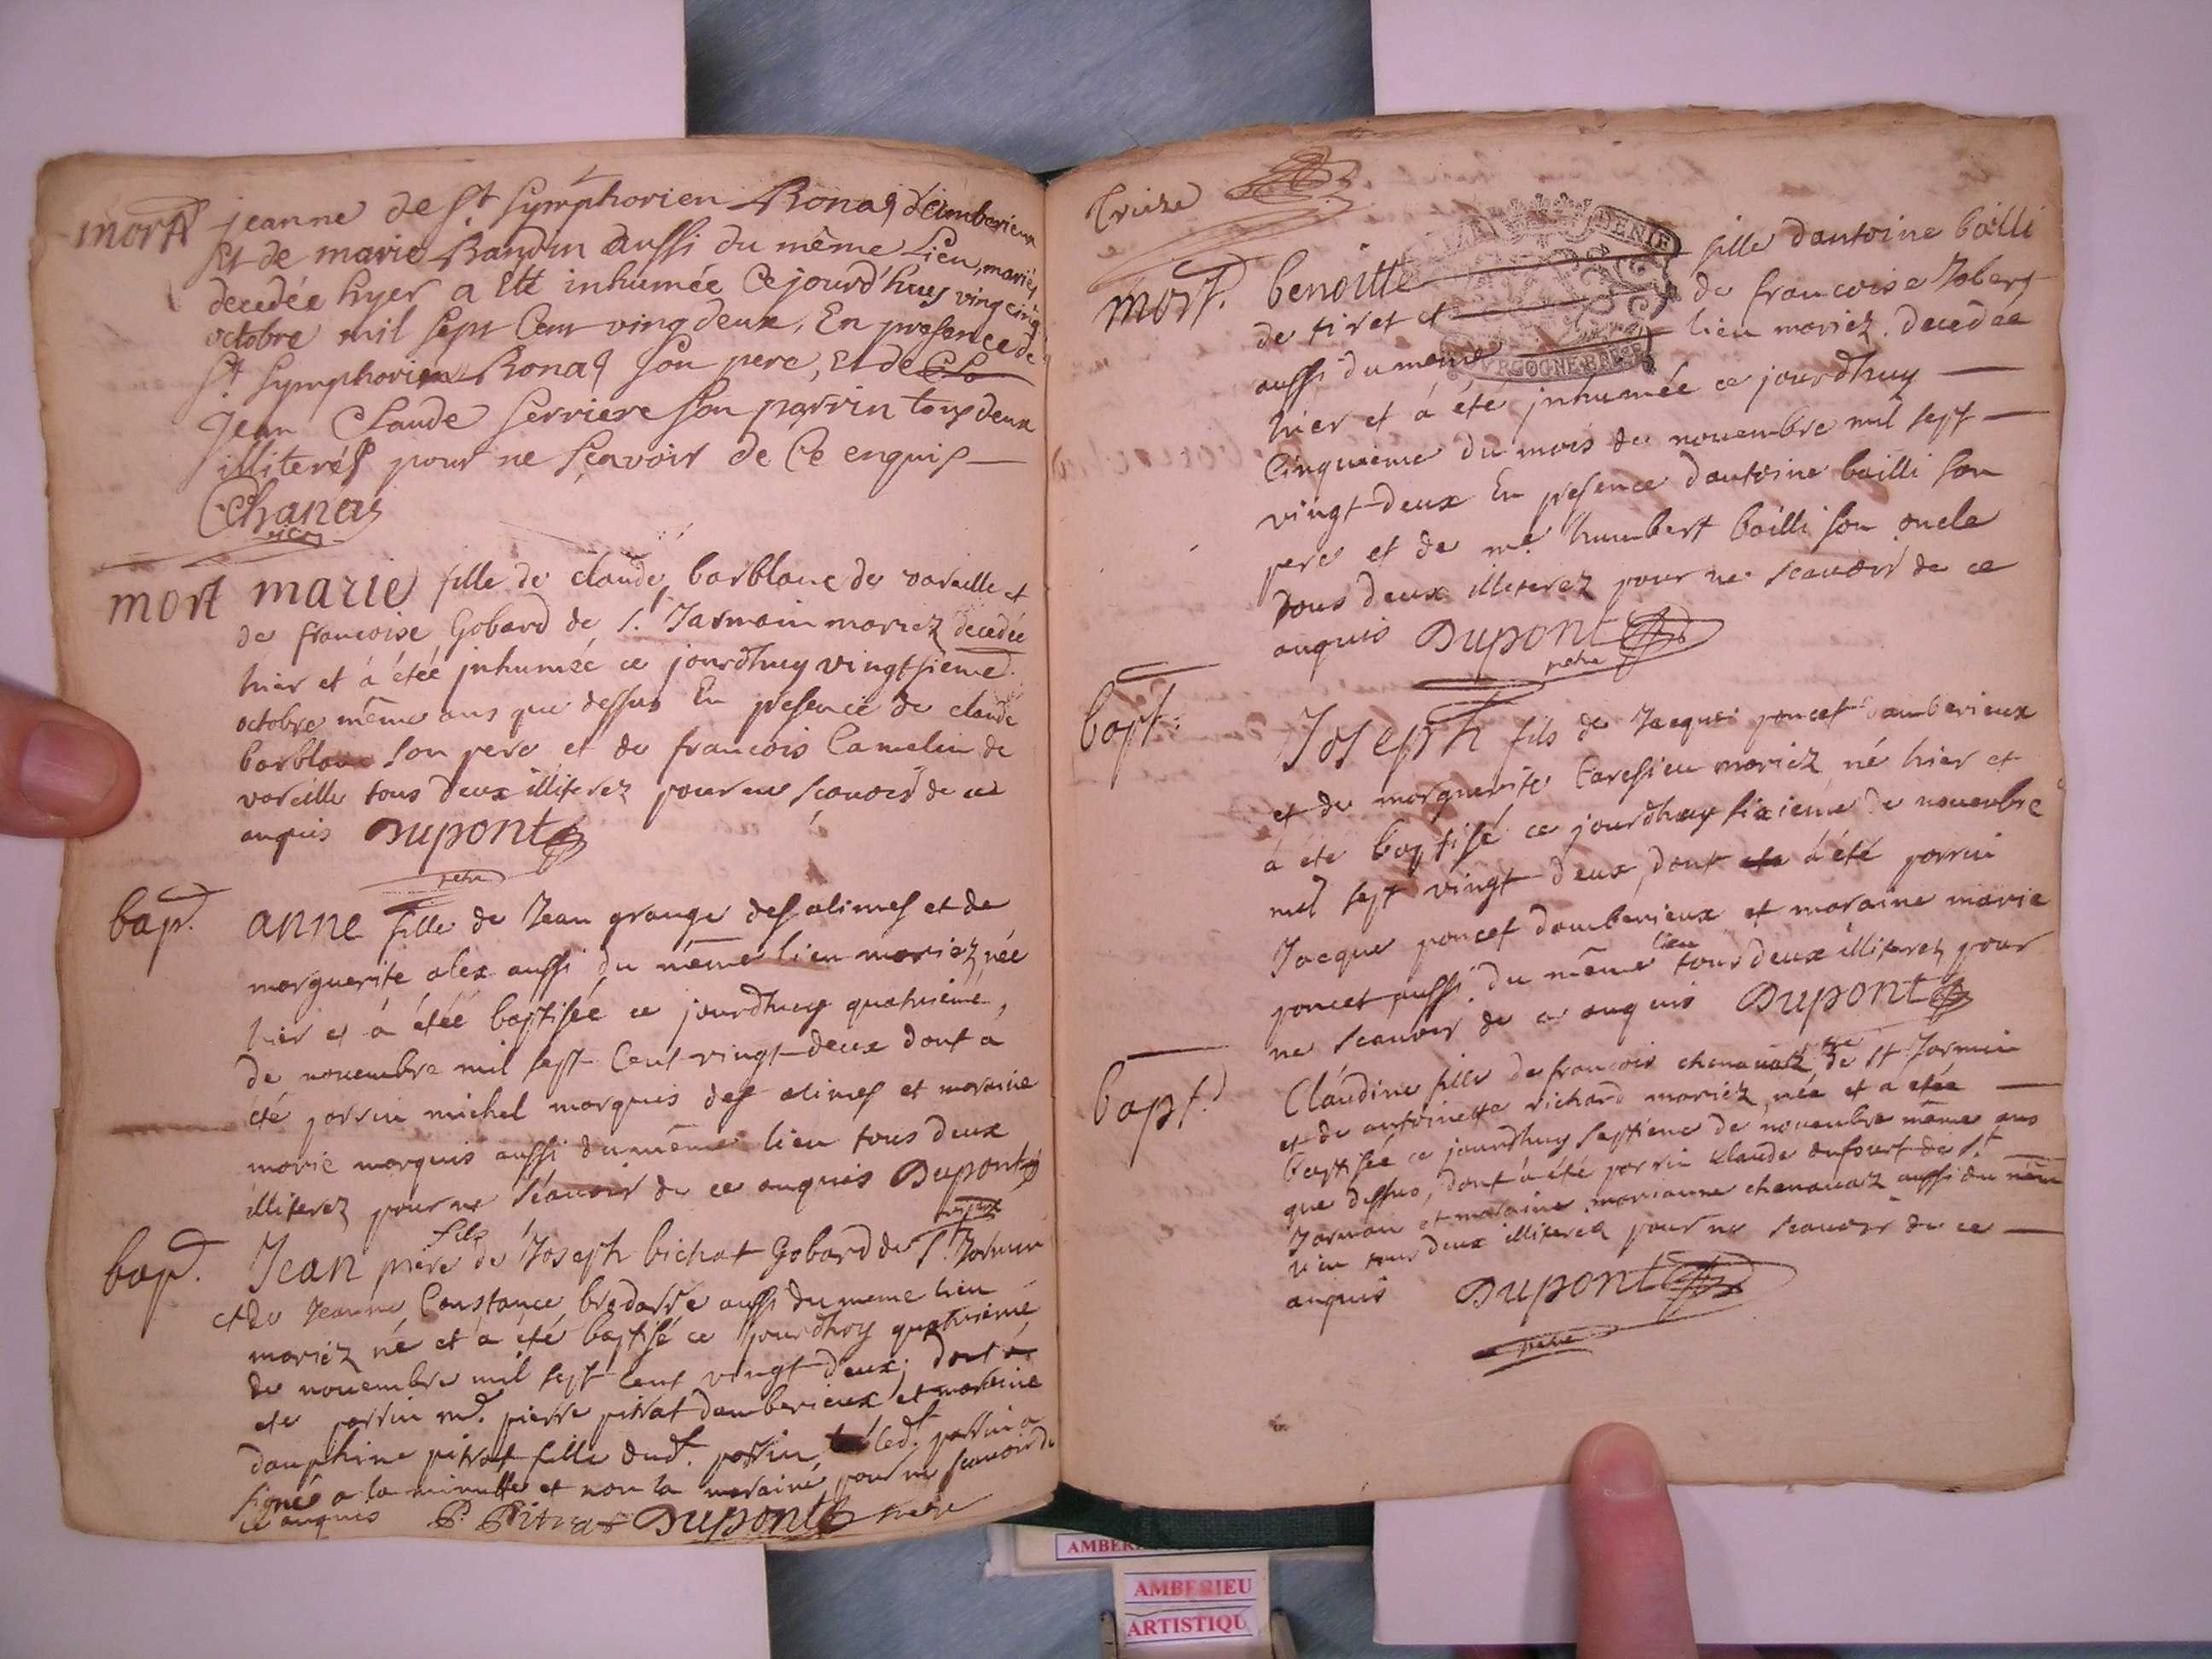 mort jeanne de St Symphorien Bonaq d'emberieux
Et de marie Baudin aussi du même Lieu, mariés
decedée hyer a Eté inhumée Ce jourd'huy vingt cinq
octobre mil sept Cent vingdeux, En presence de
St Symphorien Bonaq son pere, et de
Jean Claude serriere son parrin tous deux
illiterés pour ne sçavoir de Ce enquis
Chanas
vicr
mort marie fille de claude barblanc de vareille et
de francoise Gobard de St Jarmain mariez decedée
hier et á étéé jnhumée ce jourdhuy vingtsieme
octobre même ans que dessus En presence de claude
barblanc son pere et de francois Camelin de
vareille tous deux illiterez pour ne scauoir de ce
anquis Dupont
petre
bap. anne fille de Jean grange des alimes et de
marguerite alex aussi du même lieu mariez née
hier et á étéé baptisée ce jourdhuy quatrieme
de nouembre mil sept Cent vingt deux dont á
été parrin michel marquis des alimes et maraine
marie marquis aussi du même lieu tous deux
illiterez pour ne scauoir de ce anquis Dupont
bap. Jean piere fils de Joseph bichat Gobard de St Jarmin
et de Jeanne Constance bredarre aussi du meme lieu
mariez né et a été baptisé ce jourdhuy quatrieme
de nouembre mil sept Cent vingt deux; dont á
ete parrin md. pierre pitrat damberieux et maraine
dauphine pitrat fille dudt. parrin ledt parrin a
signé a la minutte et non la maraine pour ne scauoir de
ce anquis P. Pitrat Dupont petre
treize
mort. benoitte fille dantoine bailli
de tiret et de francoise Jobert
aussi du meme lieu mariez. decedée
hier et á été jnhumée ce jourdhuy
Cinquieme du mois de nouembre mil sept
vingt deux En presence dantoine bailli son
pere et de me humbert bailli son oncle
tous deux illiterez pour ne scauoir de ce
anquis Dupont
petre
bapt. Joseph fils de Jacques poncet damberieux
et de marguerite Caresieu mariez né hier et
á éte baptisé ce jourdhuy sixieme de nouembre
mil sept vingt deux, dont á été parrin
Jacque poncet damberieux et maraine marie
poncet aussi du même lieu tous deux illiterez pour
ne scauoir de ce anquis Dupont
bapt. Claudine fille de francois chenauaz de St Jarmin
et de antoinette richard mariez, née et á étée
baptisée ce jourdhuy septieme de nouembre même ans
que dessus, dont á été parrin Claude dufourt de St
Jarmain et maraine marianne chenauaz aussi du même
lieu tous deux illiterez pour ne scauoir de ce
anquis Dupont
petre
AMBERIEU
ARTISTIQU